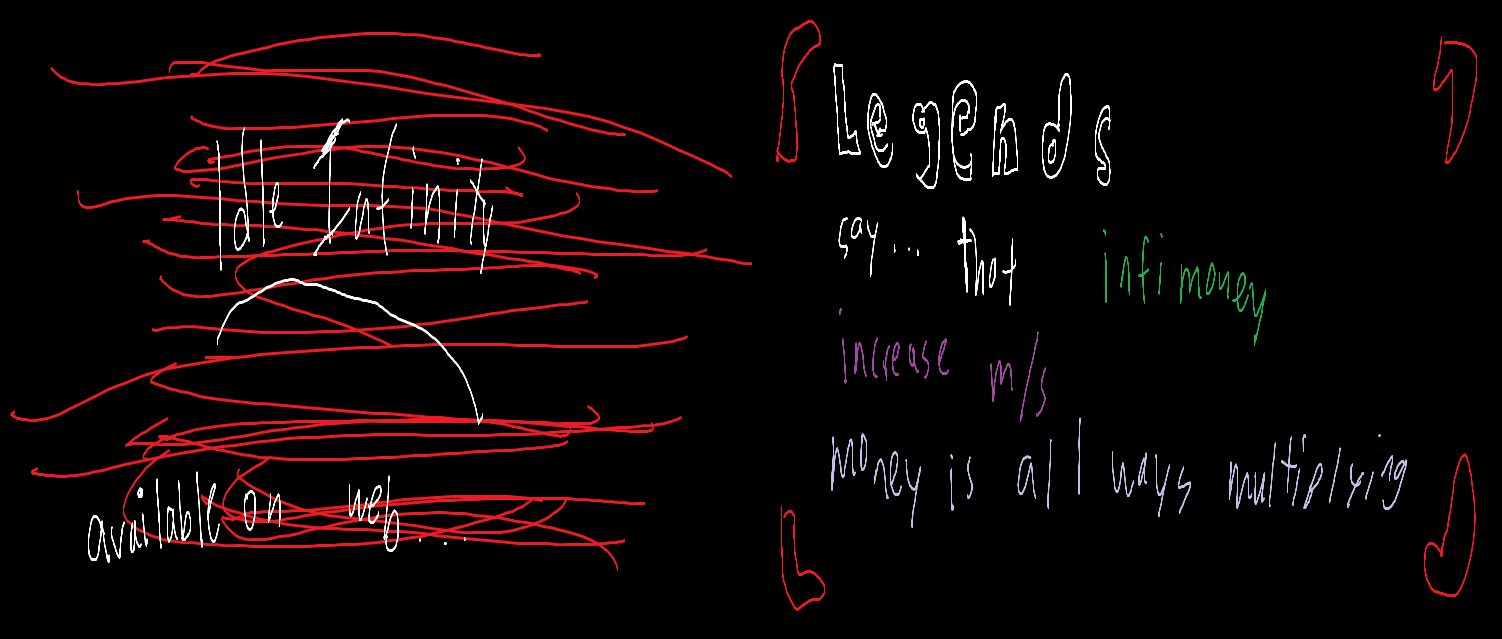 Idle Infinity
available on web...
Legends
say... that infimoney
increase m/s
money is all ways multiplying